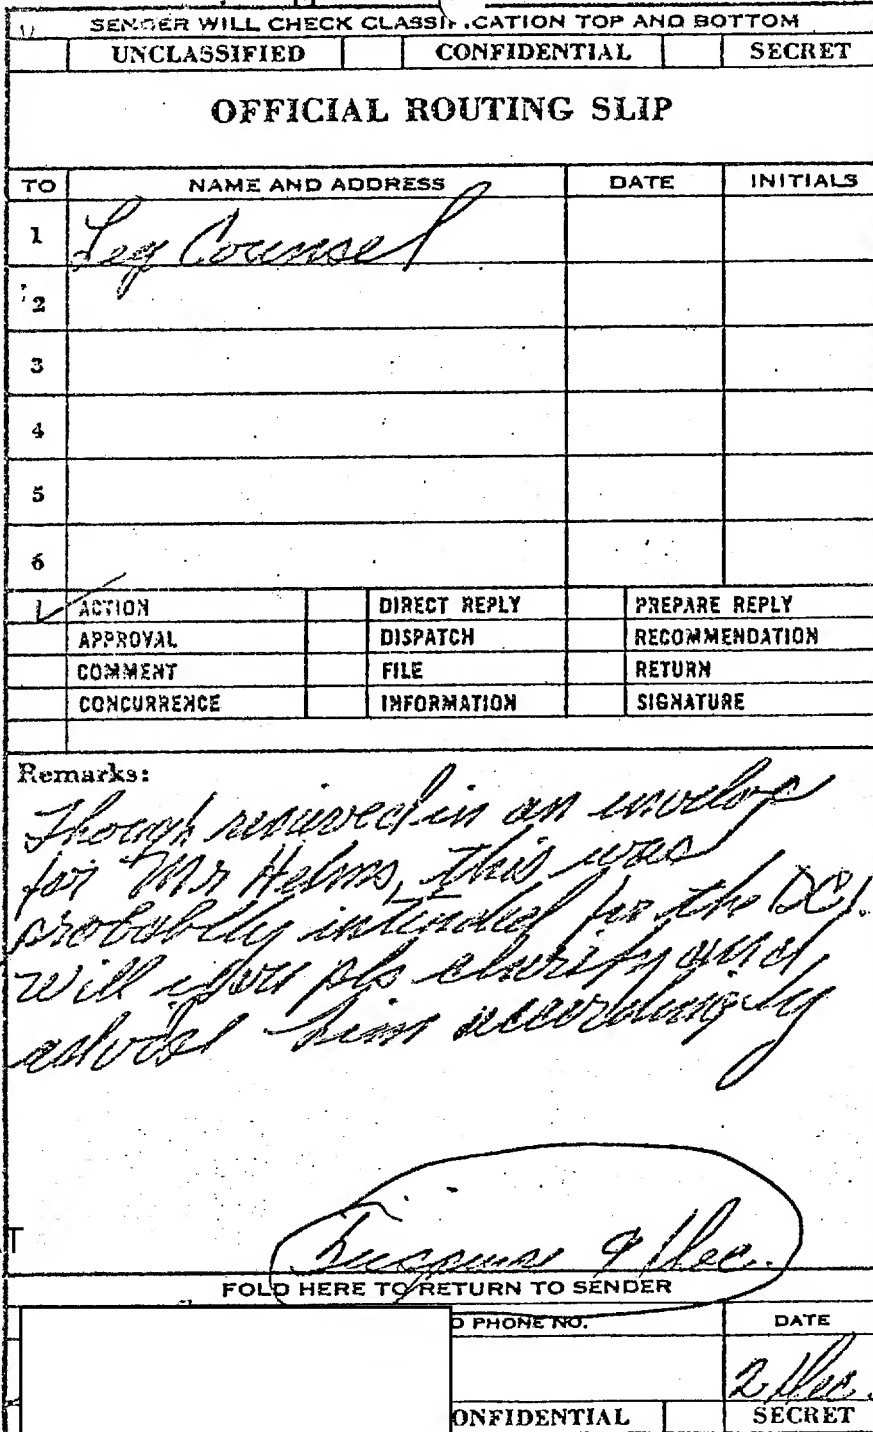 SENDER WILL CHECK CLASSIFICATION TOP AND BOTTOM
UNCLASSIFIED CONFIDENTIAL SECRET
OFFICIAL ROUTING SLIP
TO NAME AND ADDRESS DATE INITIALS
1 Leg Counsel
2
3
4
5
6
ACTION DIRECT REPLY PREPARE REPLY
APPROVAL DISPATCH RECOMMENDATION
COMMENT FILE RETURN
CONCURRENCE INFORMATION SIGNATURE
Remarks:
Though received in an envelop
for Mr Helms, this was
probably intended for the DCI.
Will you pls clarify and
advise him accordingly
T
Dec.
FOLD HERE TO RETURN TO SENDER
PHONE NO. DATE
2 Dec.
ONFIDENTIAL SECRET